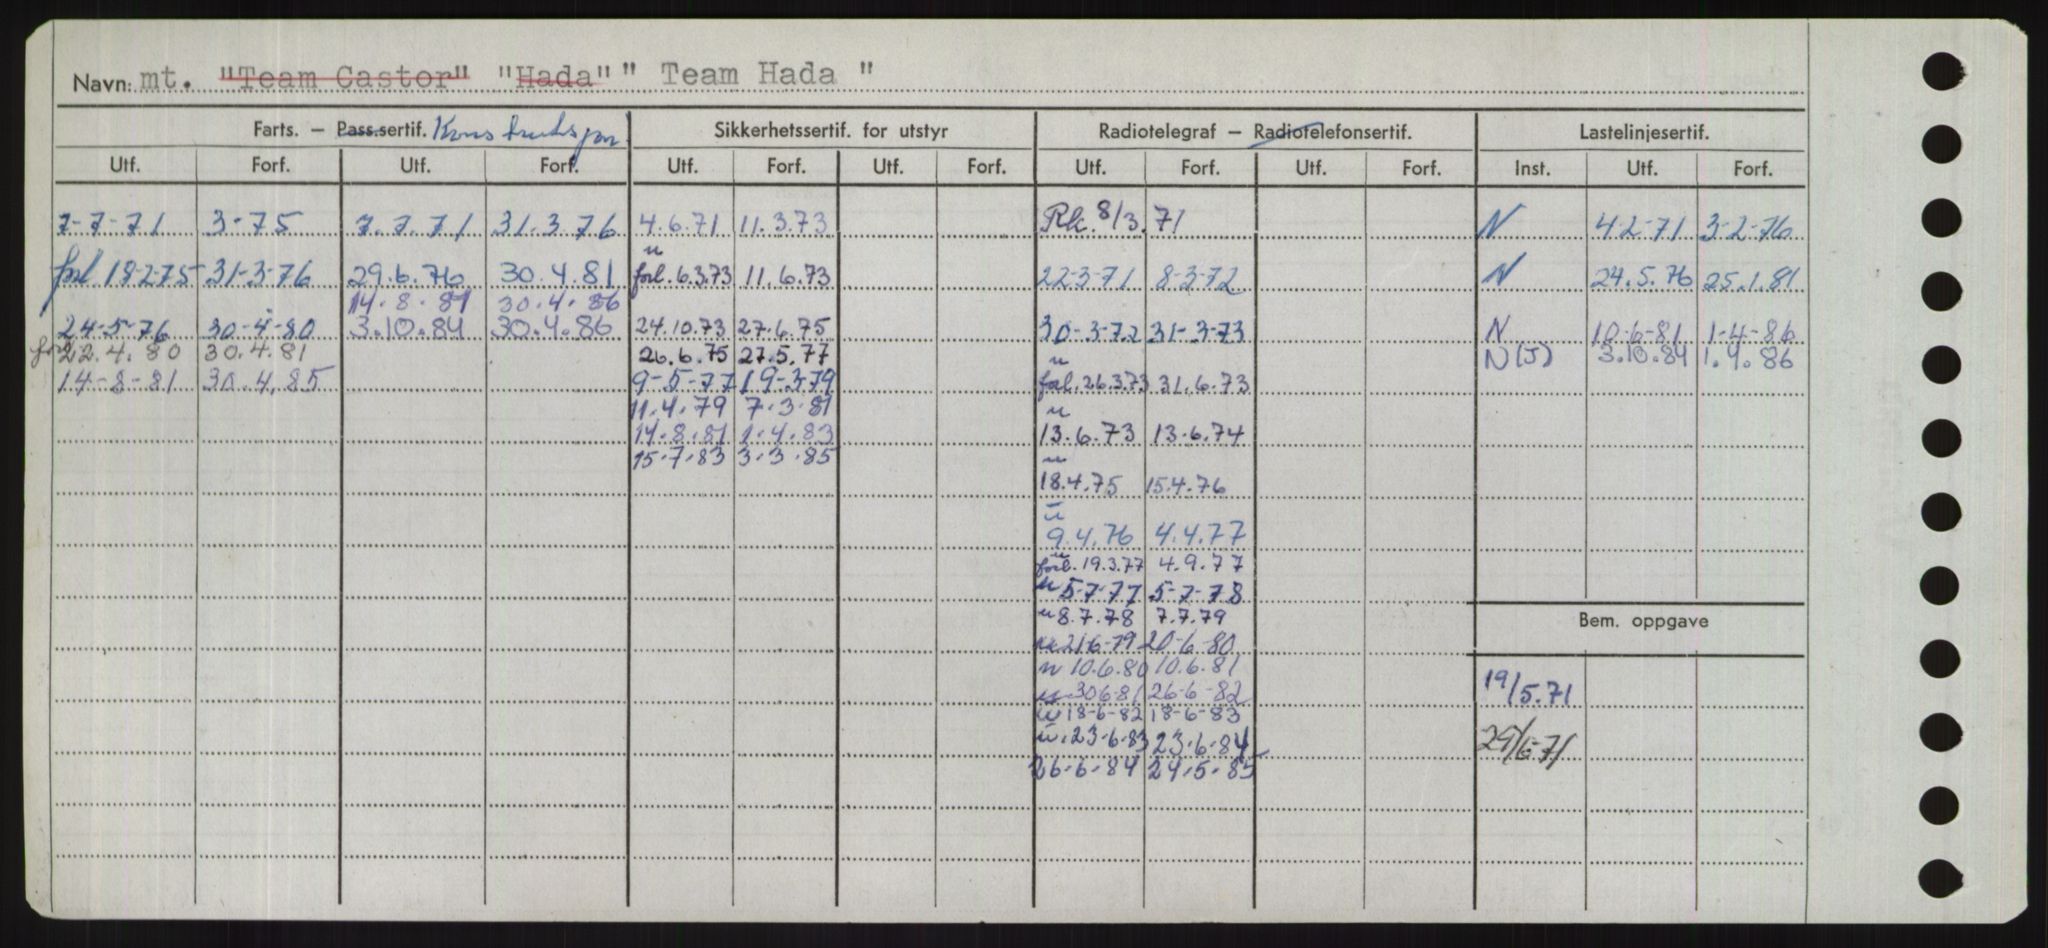 Navn: mt. "Team Castor" "Hada" " Team Hada "
Farts. — Pass.sertif. Sikkerhetssertif. for utstyr Radiotelegraf — Radiotelefonsertif. Lastelinjesertif.
Utf. Forf. Utf. Forf. Utf. Forf. Utf. Forf. Utf. Forf. Utf. Forf. Inst. Utf. Forf.
7-7-71 3-75 7.7.71 31.3.76 4.6.71 11.3.73 Rk. 8/3.71 N 4-2-71 3-2-76
u
forl 18-2-75 31-3-76 29.6.76 30.4.81 forl. 6.3.73 11.6.73 22-3-71 8-3-72 N 24.5.76 25.1.81
14.8.81 30.4.86
24-5-76 30-4-80 3.10.84 30.4.86 24.10.73 27.6.75 30-3-72 31-3-73 N 10-6-81 1-4-86
22.4.80 30.4.81 26.6.75 27.5.77 u N(J) 3.10.84 1.4.86
14-8-81 30.4.85 9-5-77 19-3-79 forl. 26.3.73 31.6.73
11.4.79 7.3.81 u
14.8.81 1.4.83 13.6.73 13.6.74
15.7.83 3.3.85 u
18.4.75 15.4.76
u
9.4.76 4.4.77
u
forl. 19.3.77 4.9.77
u 5-7-77 5-7-78
u 8.7.78 7.7.79
u 21-6-79 20-6-80
Bem. oppgave
u 10.6.80 10.6.81
u 30-6-81 26-6-82
19/5.71
u 18-6-82 18-6-83
u. 23.6.83 23.6.84
29/6-71
26.6.84 24.5.85